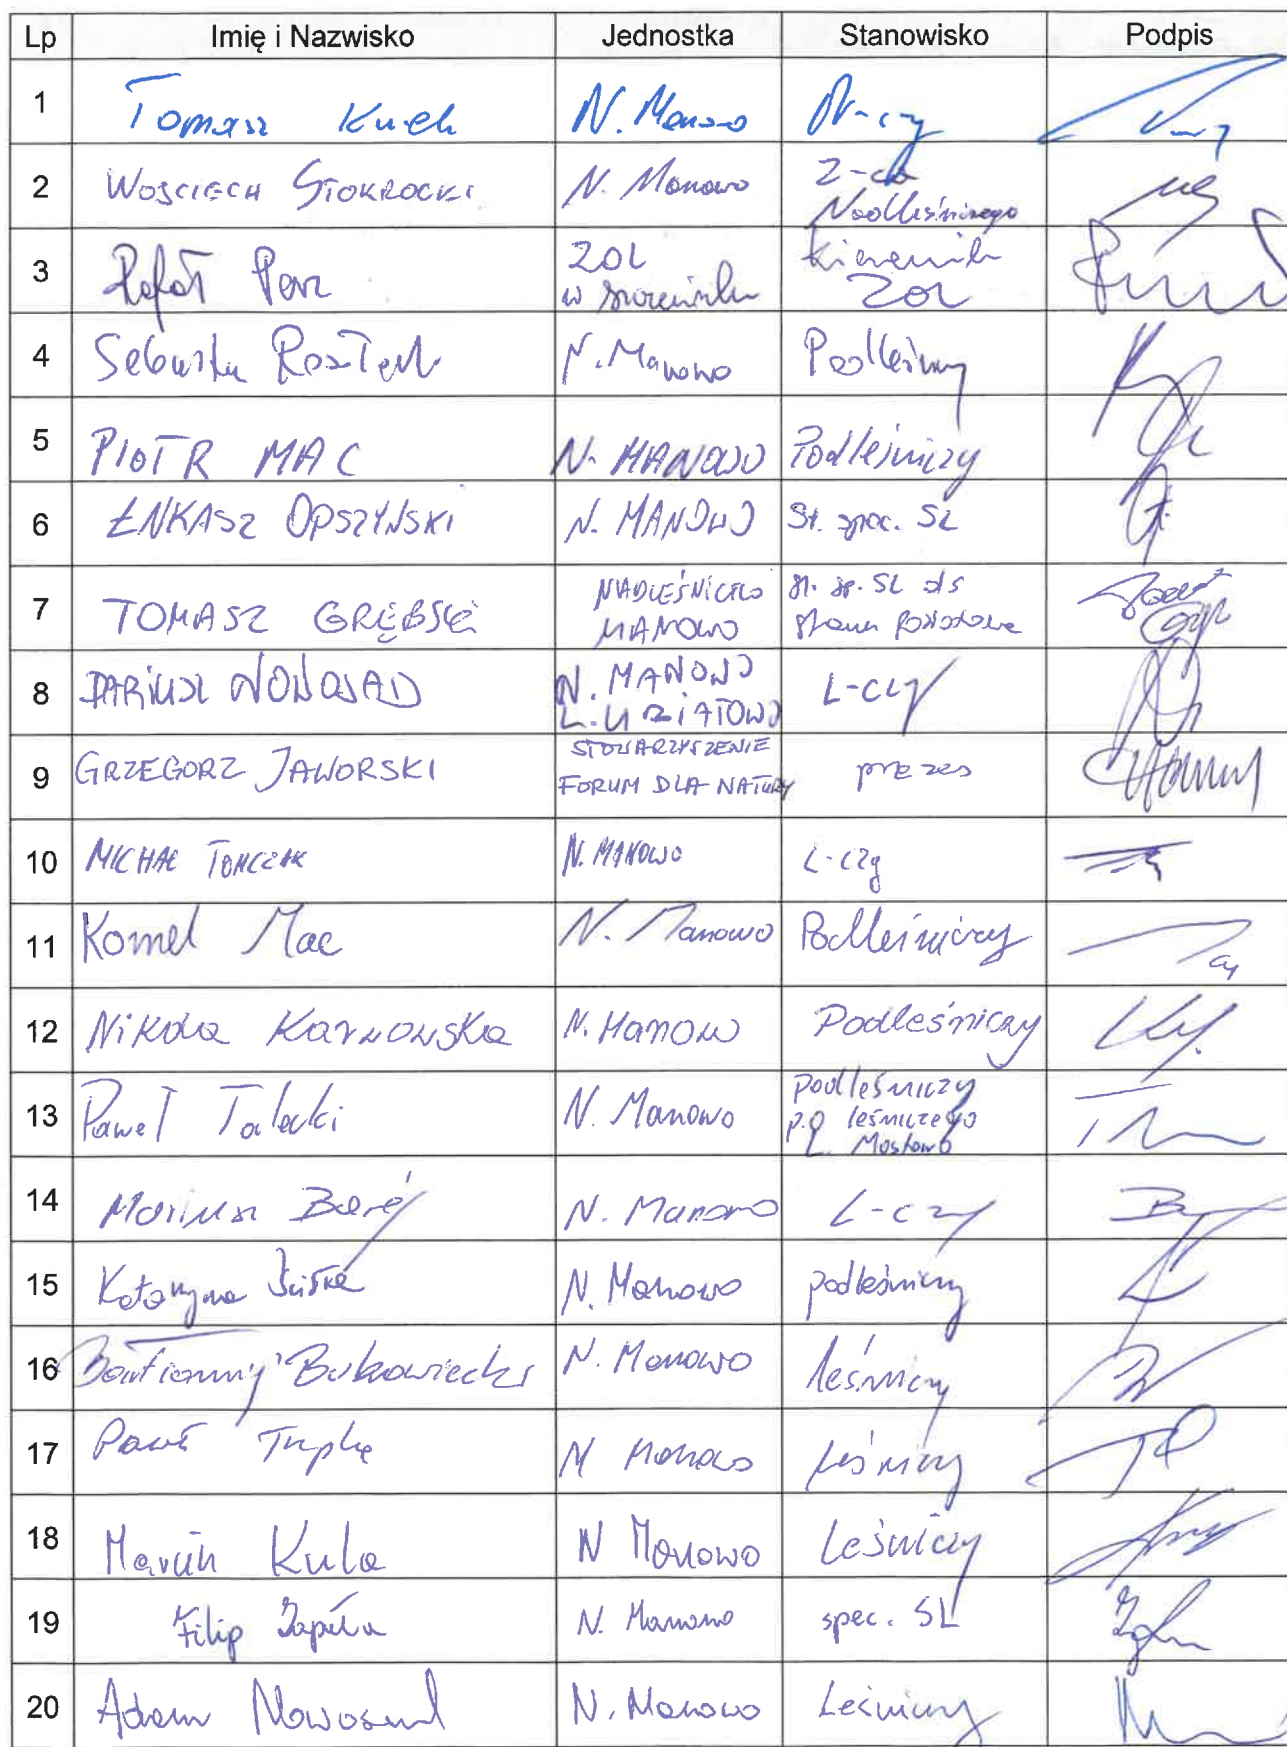 Lp Imię i Nazwisko Jednostka Stanowisko Podpis
1 Tomasz N. Manowo N-czy
2 WOJCIECH STOKROCKI N. Manowo Z-ca
Nadleśniczego
3 Rafał ZOL
w Szczecinku Kierownik
ZOL
4 N. Manowo Podleśniczy
5 PIOTR MAC N. MANOWO Podleśniczy
6 ŁUKASZ OPSZYŃSKI N. MANOWO St. spec. SL
7 TOMASZ GRĘBSKI NADLEŚNICTWO
MANOWO st. sp. SL ds
8 DARIUSZ NOWOSAD N. MANOWO
L. UZIATOWO L-czy
9 GRZEGORZ JAWORSKI STOWARZYSZENIE
FORUM DLA NATURY prezes
10 MICHAŁ TOMCZAK N. MANOWO L-czy
11 Kornel Mac N. Manowo Podleśniczy
12 Nikola Karnowska N. Manowo Podleśniczy
13 Paweł Talecki N. Manowo podleśniczy
p.o. leśniczego
L. Mostowo
14 Mariusz N. Manowo L-czy
15 Katarzyna N. Manowo podleśniczy
16 Bartłomiej Bukowiecki N. Manowo leśniczy
17 Paweł N Manowo leśniczy
18 Marcin Kula N Manowo Leśniczy
19 Filip Zapała N. Manowo spec. SL
20 Adam Nowosad N. Manowo Leśniczy